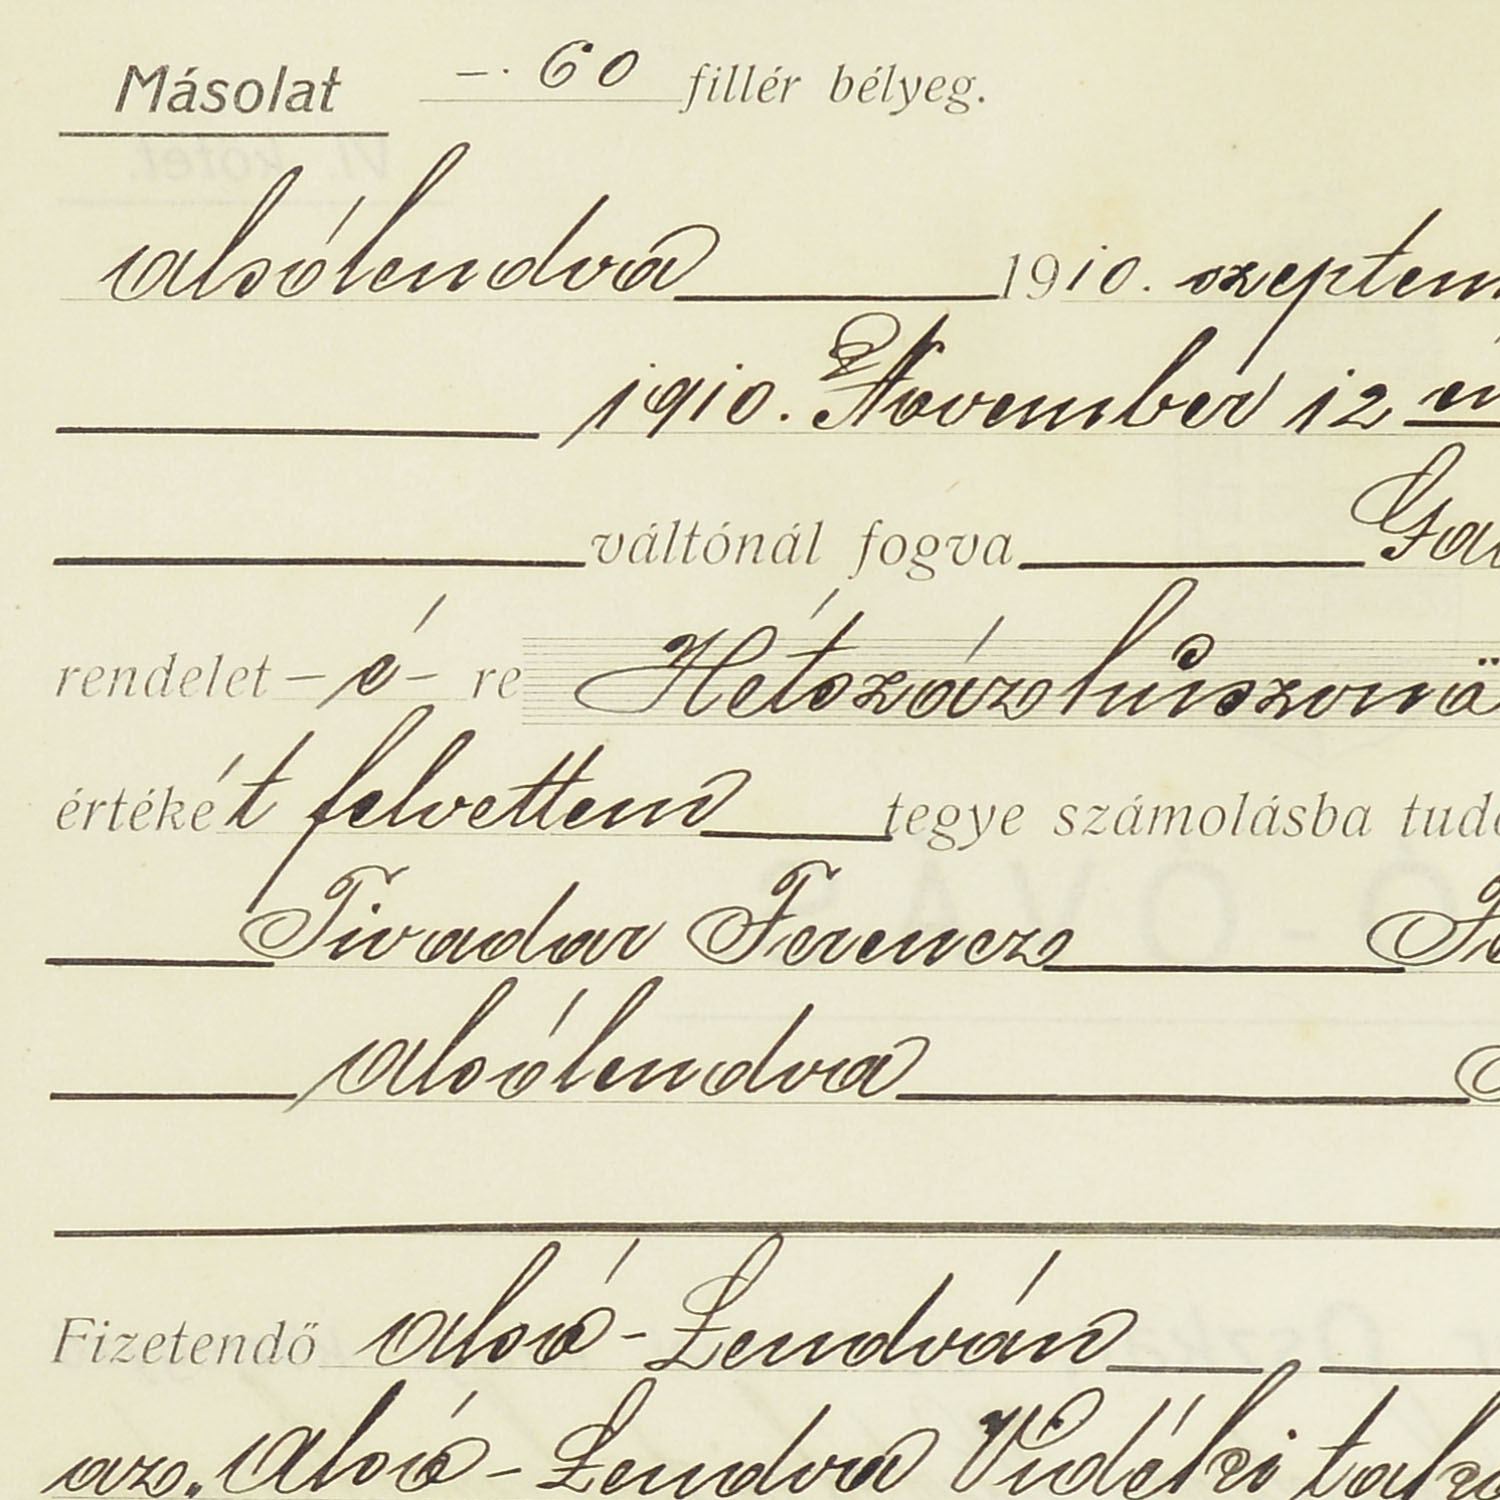 Másolat –. 60 fillér bélyeg.
Alsólendva 1910. szeptem
1910. November 12 én
váltónál fogva Ga
rendelet – é – re Hétszázhúszonö
értékét felvettem tegye számolásba tudó
Tivadar Ferencz Fe
Alsólendva
Fizetendő Alsó-Lendván
az. Alsó-Lendva Vidéki taka